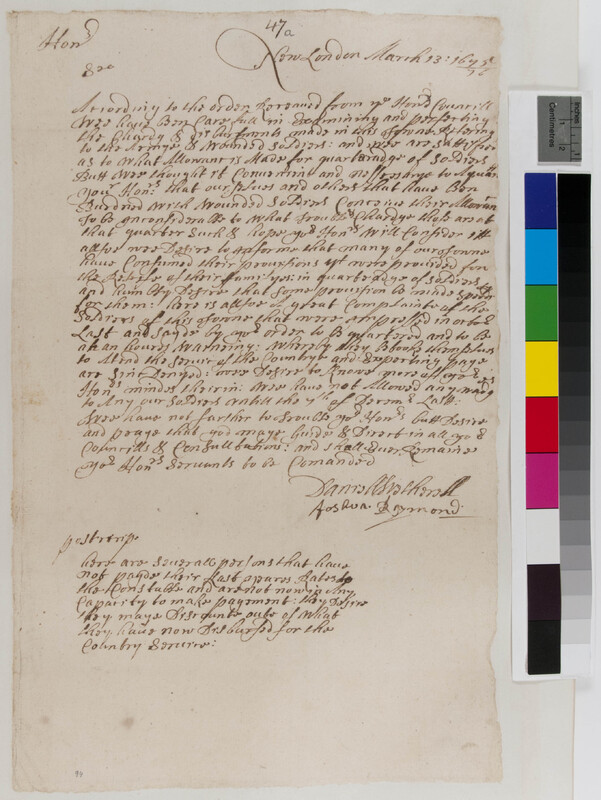 47a
Honrs
New London March 13: 1675/76
&ce
According to the order Receaved from yor Honrs Councill
Wee have Ben Carefull in Examining and perfecting
the Chardg & disbursments made in this towne Relating
to the Armye & wounded soldiers: and wee are sattisfied
as to what Allowanc is Made for quarteradge of soldiers
Butt wee thought it Convenient and to Aquaint
your Honrs that our selves and others that have Ben
Burdned with wounded soldiers Conceive their
to be inconsiderable to what trouble & Chardge those are at
that quarter such & hope yor Honrs will Consider itt
allsoe wee Desire to Informe that many of our towne
have Consumed their provissions yt were provided for
the Releife of their familyes: in quarteradge of soldiers
and humbly Desire that some provision be made
for them: here is allsoe A great Complainte of the
soldiers of this towne that were impressed in
Last and sayde by yor order to be quartered and to be
att an houres warneing: wherby they
to Atend the servic of the Countrye and: Expecting paye
are Denyed: wee Desire to knowe more of yor
Honrs mindes therin: wee have not Allowed any
to Any our soldiers untill the 7th of Decemr Last:
wee have not farther to trouble yor Honrs butt Desire
and praye that god maye Guide & Direct in all yor
Councills & Consulltations: and shall Ever Remaine
yor Honrs servants to be Comanded
Daniell Wetherell
Joshua Raymond
postscrip
here are severall persons that have
not payde their Last yeares Rates to
the Constable and are not now in Any
Capacity to make payement: they Desire
they maye Discounte oute of what
they have now Disbursed for the
Country service:
Centimetres
Inches